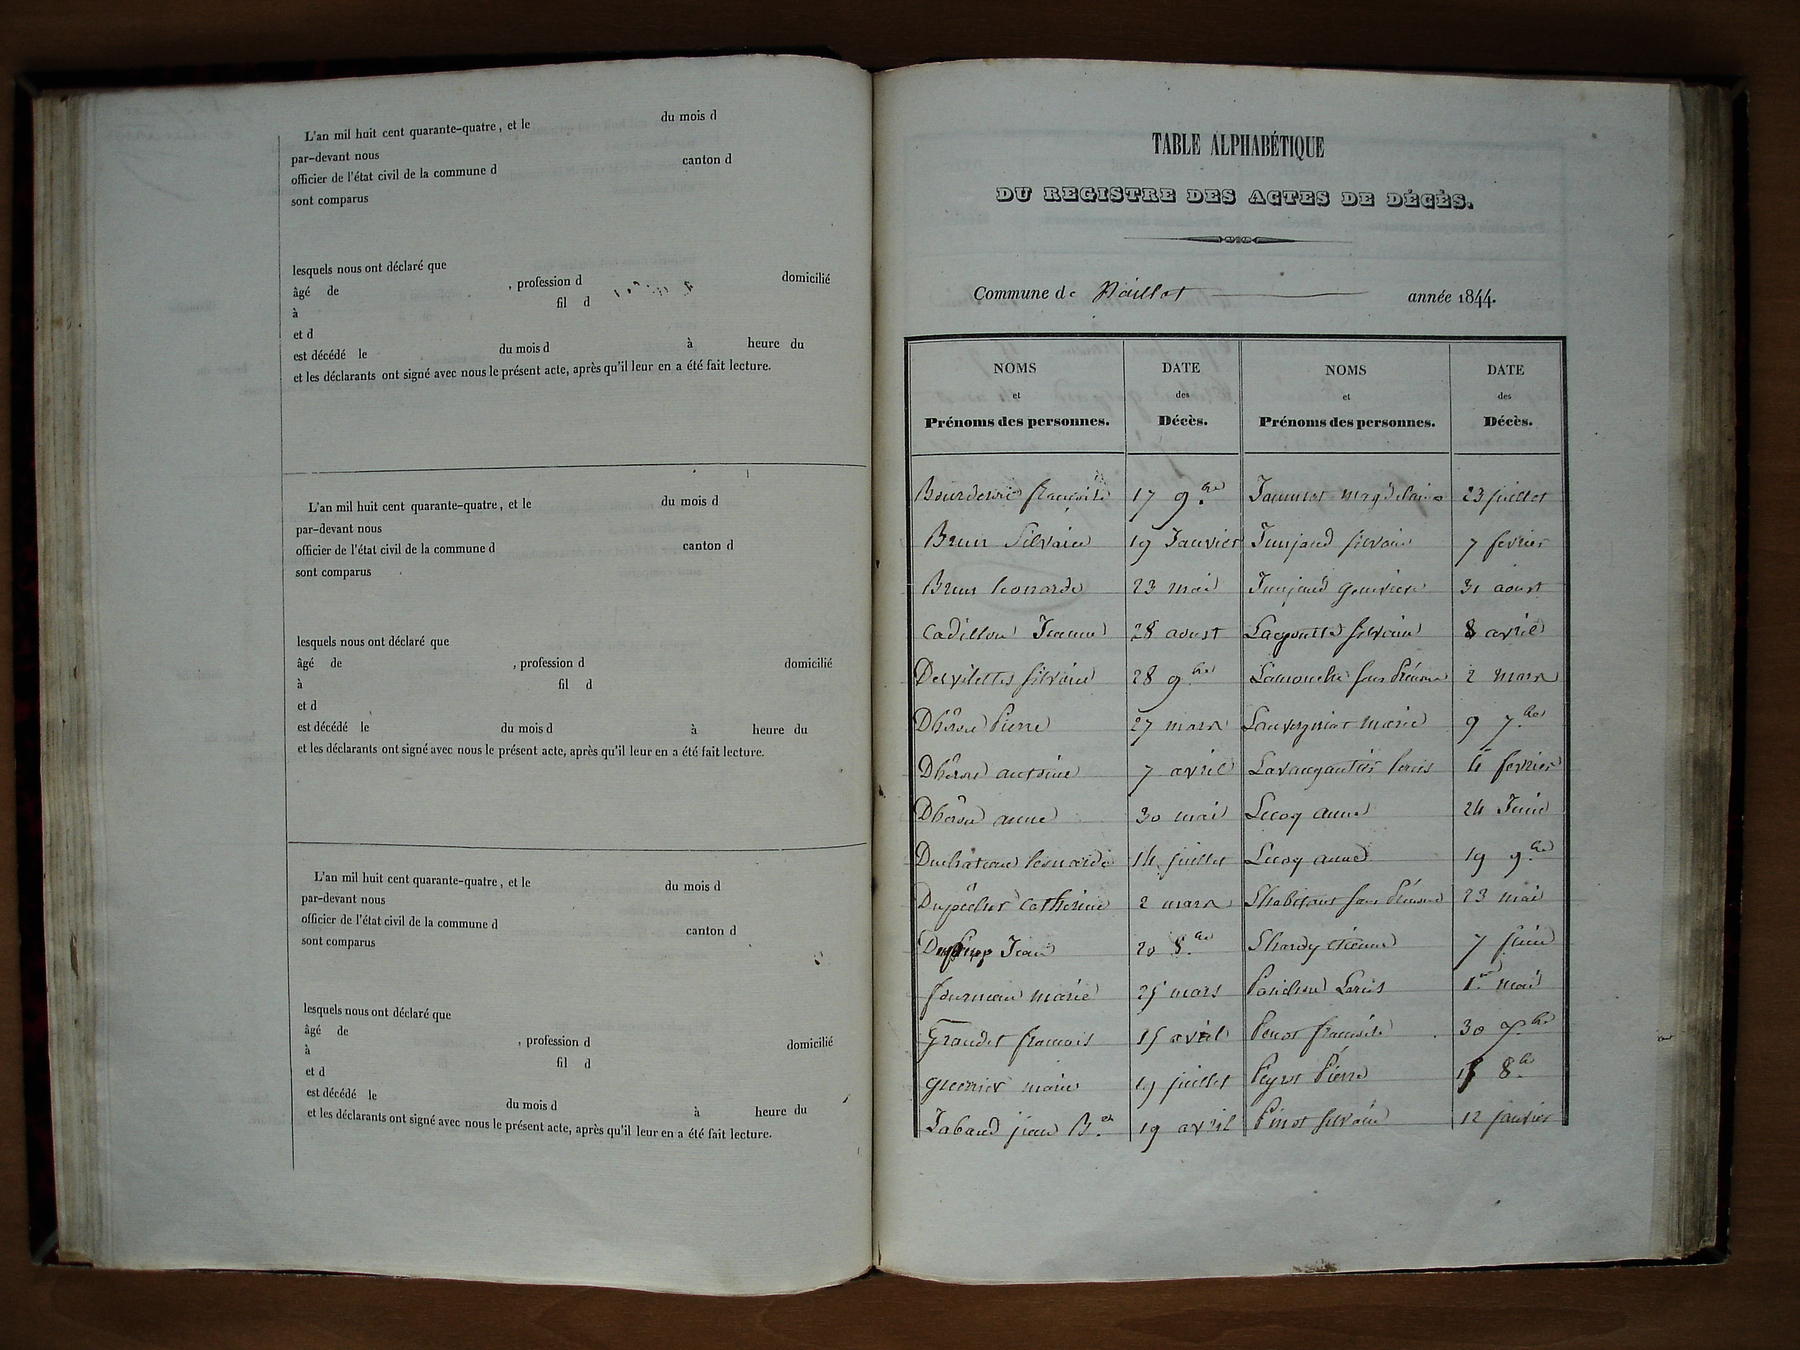 L'an mil huit cent quarante-quatre, et le du mois d
par-devant nous
officier de l'état civil de la commune d canton d
sont comparus
lesquels nous ont déclaré que
âgé de , profession d domicilié
à fil d
et d
est décédé le du mois d à heure du
et les déclarants ont signé avec nous le présent acte, après qu'il leur en a été fait lecture.
L'an mil huit cent quarante-quatre, et le du mois d
par-devant nous
officier de l'état civil de la commune d canton d
sont comparus
lesquels nous ont déclaré que
âgé de , profession d domicilié
à fil d
et d
est décédé le du mois d à heure du
et les déclarants ont signé avec nous le présent acte, après qu'il leur en a été fait lecture.
L'an mil huit cent quarante-quatre, et le du mois d
par-devant nous
officier de l'état civil de la commune d canton d
sont comparus
lesquels nous ont déclaré que
âgé de , profession d domicilié
à fil d
et d
est décédé le du mois d à heure du
et les déclarants ont signé avec nous le présent acte, après qu'il leur en a été fait lecture.
TABLE ALPHABÉTIQUE
DU REGISTRE DES ACTES DE DÉCÈS.
Commune de année 1844.
NOMS DATE NOMS DATE
et des et des
Prénoms des personnes. Décès. Prénoms des personnes. Décès.
17 9.bre magdelaine 23 juillet
Brun Silvain 19 Janvier Silvain 7 fevrier
Brun leonarde 23 mai genevieve 31 aoust
Cadillon Jeanne 28 aoust Silvain 8 avril
Silvain 28 9.bre Lamouche sans Prénom 2 mars
Pierre 27 mars marie 9 7.bre
antoine 7 avril louis 4 fevrier
anne 30 mai Lecoq anne 24 Juin
Duchateau leonarde 14 juillet Lecoq anne 19 9.bre
catherine 2 mars sans Prénom 23 mai
Jean 20 8.bre Lhardy 7 juin
fourneau marie 25 mars Louis 1.er mai
Graudet francois 15 avril Penot 30 7.bre
marie 19 juillet Peyrot Pierre 8.bre
Jabaud jean B.te 19 avril Pinot Silvain 12 janvier